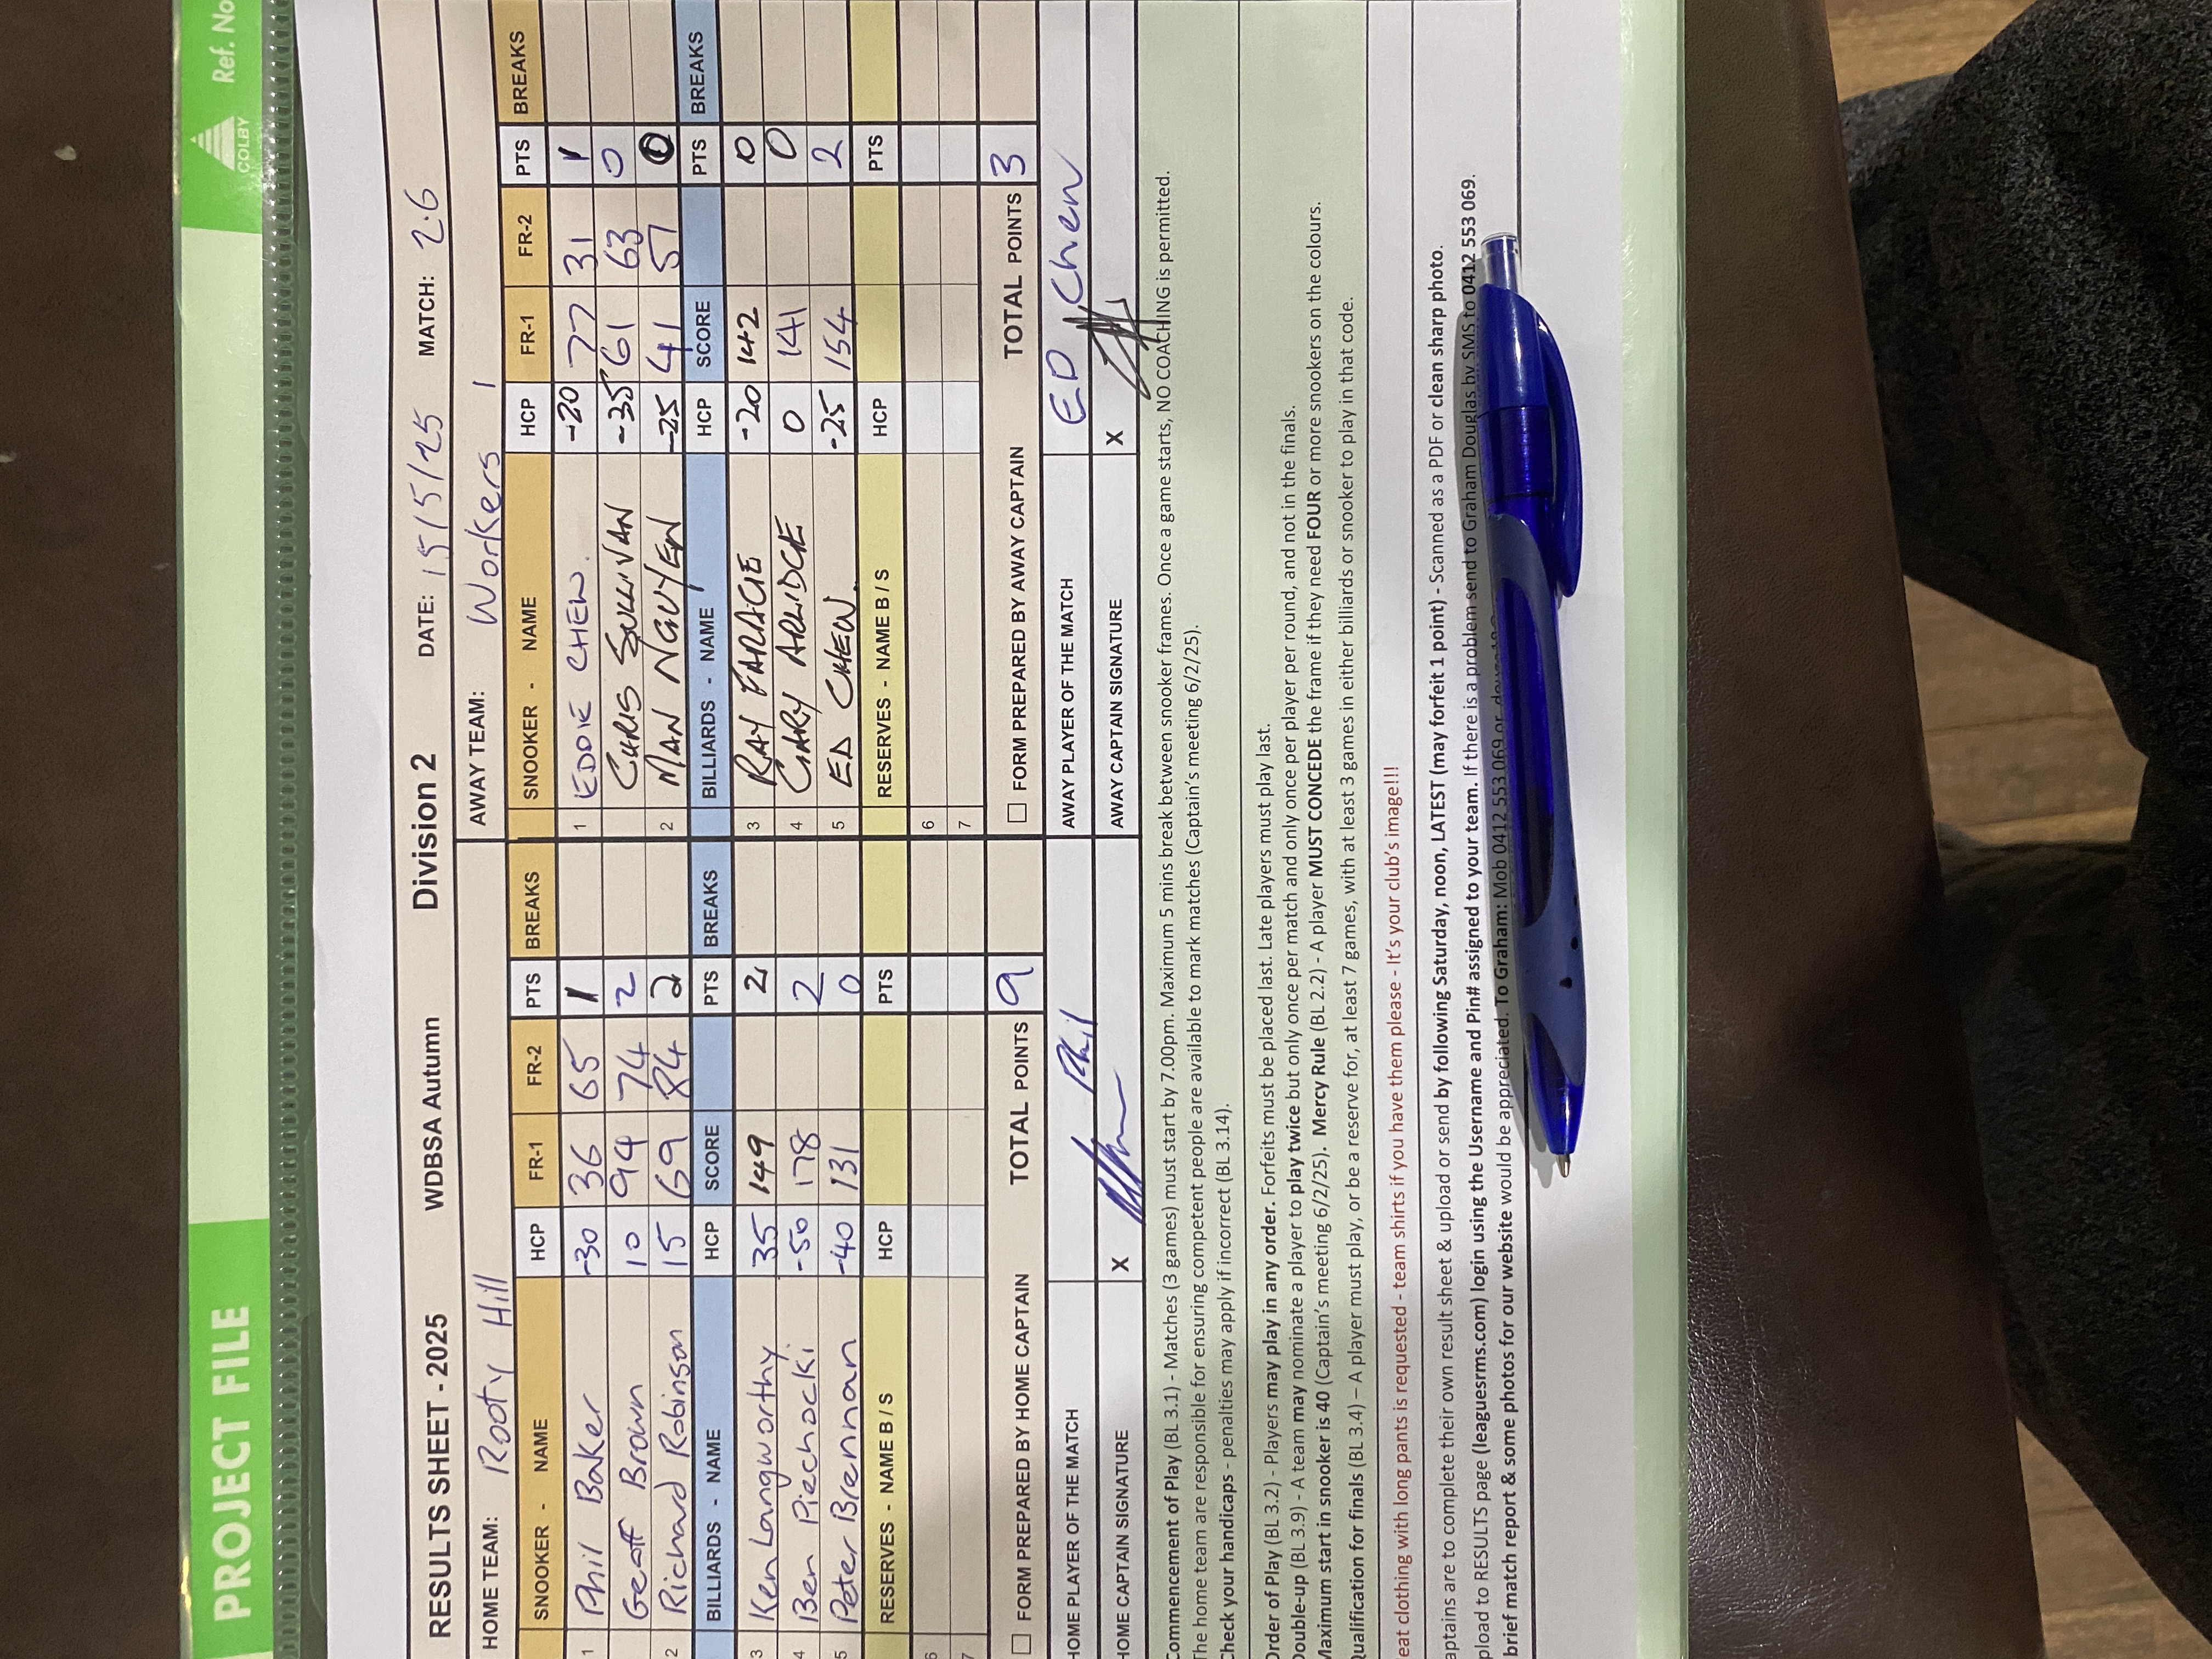 PROJECT FILE
COLBY
Ref. No
RESULTS SHEET - 2025 WDBSA Autumn Division 2 DATE: 15/5/25 MATCH: 2.6
HOME TEAM: Rooty Hill AWAY TEAM: Workers 1
SNOOKER - NAME HCP FR-1 FR-2 PTS BREAKS SNOOKER - NAME HCP FR-1 FR-2 PTS BREAKS
1 Phil Baker -30 36 65 1 1 EDDIE CHEN. -20 77 31 1
Geoff Brown 10 94 74 2 CHRIS SULLIVAN -35 61 63 0
2 Richard Robinson 15 69 84 2 2 MAN NGUYEN -25 41 57 0
BILLIARDS - NAME HCP SCORE PTS BREAKS BILLIARDS - NAME HCP SCORE PTS BREAKS
3 Ken Langworthy 35 149 2 3 RAY FARAGIE -20 142 0
4 Ben Piechocki -50 178 2 4 GARY ARLIDGE 0 141 0
5 Peter Brennan -40 131 0 5 ED CHEN. -25 154 2
RESERVES - NAME B / S HCP PTS RESERVES - NAME B / S HCP PTS
6 6
7 7
FORM PREPARED BY HOME CAPTAIN TOTAL POINTS 9 FORM PREPARED BY AWAY CAPTAIN TOTAL POINTS 3
HOME PLAYER OF THE MATCH Phil AWAY PLAYER OF THE MATCH ED Chen
HOME CAPTAIN SIGNATURE X AWAY CAPTAIN SIGNATURE X
Commencement of Play (BL 3.1) - Matches (3 games) must start by 7.00pm. Maximum 5 mins break between snooker frames. Once a game starts, NO COACHING is permitted.
The home team are responsible for ensuring competent people are available to mark matches (Captain's meeting 6/2/25).
Check your handicaps - penalties may apply if incorrect (BL 3.14).
Order of Play (BL 3.2) - Players may play in any order. Forfeits must be placed last. Late players must play last.
Double-up (BL 3.9) - A team may nominate a player to play twice but only once per match and only once per player per round, and not in the finals.
Maximum start in snooker is 40 (Captain's meeting 6/2/25). Mercy Rule (BL 2.2) - A player MUST CONCEDE the frame if they need FOUR or more snookers on the colours.
Qualification for finals (BL 3.4) – A player must play, or be a reserve for, at least 7 games, with at least 3 games in either billiards or snooker to play in that code.
eat clothing with long pants is requested - team shirts if you have them please - It's your club's image!!!
aptains are to complete their own result sheet & upload or send by following Saturday, noon, LATEST (may forfeit 1 point) - Scanned as a PDF or clean sharp photo.
pload to RESULTS page (leaguesrms.com) login using the Username and Pin# assigned to your team. If there is a problem send to Graham Douglas by SMS to 0412 553 069.
brief match report & some photos for our website would be appreciated. To Graham: Mob 0412 553 069 or